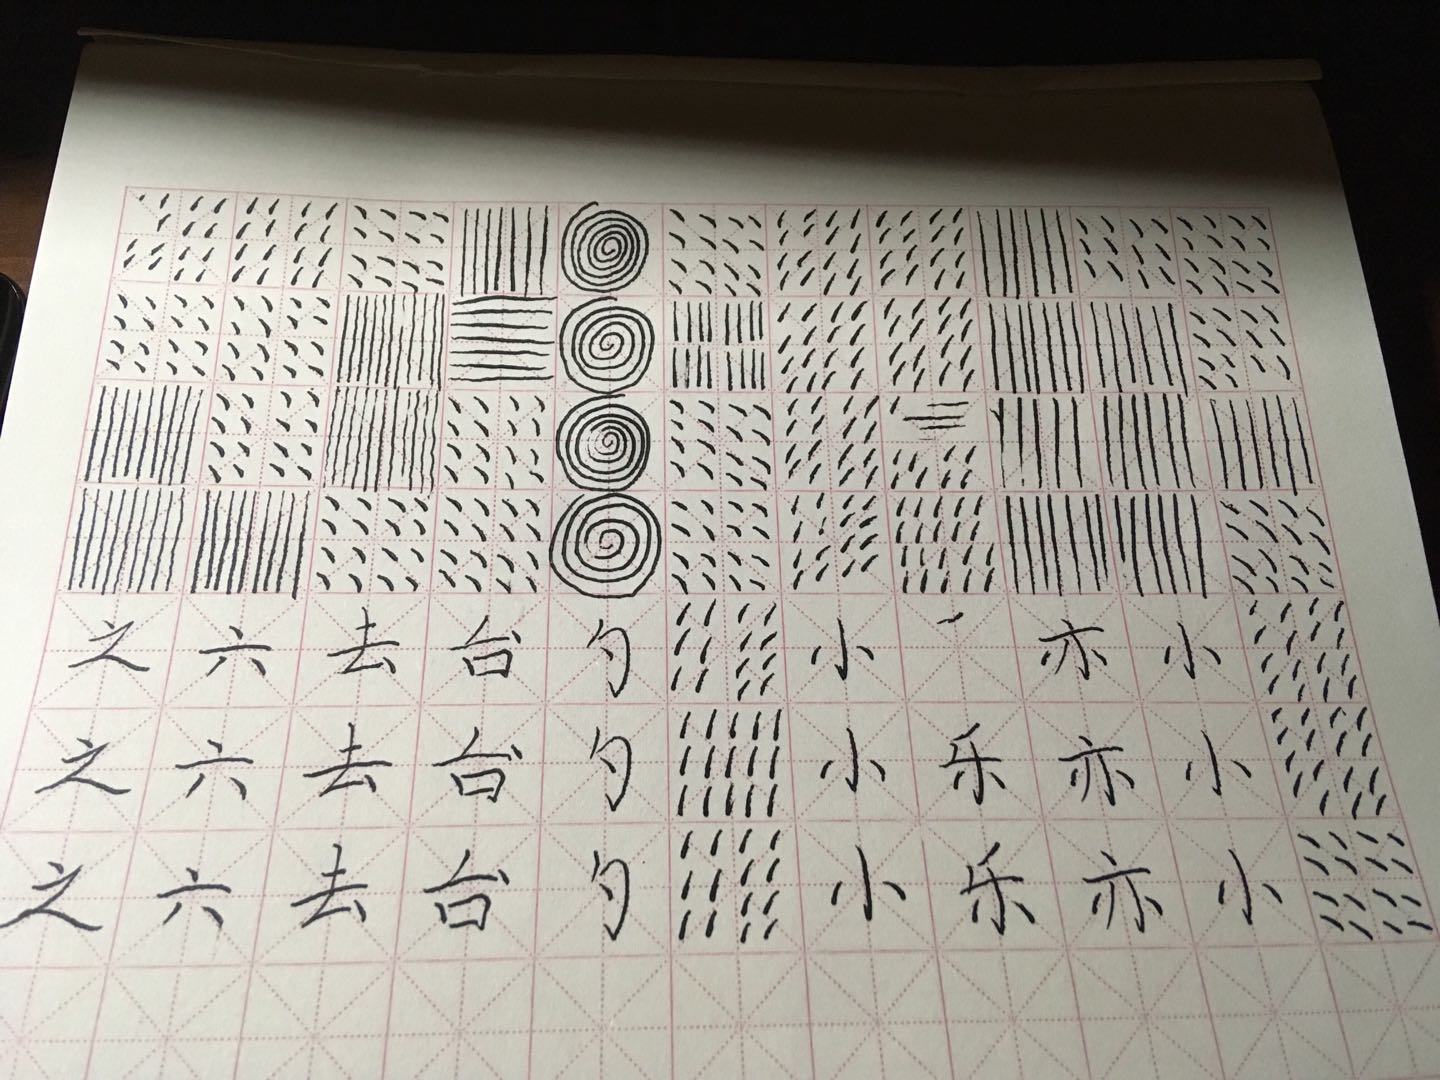 之 六 去 台 勺 小 亦 小
之 六 去 台 勺 小 乐 亦 小
之 六 去 台 勺 小 乐 亦 小